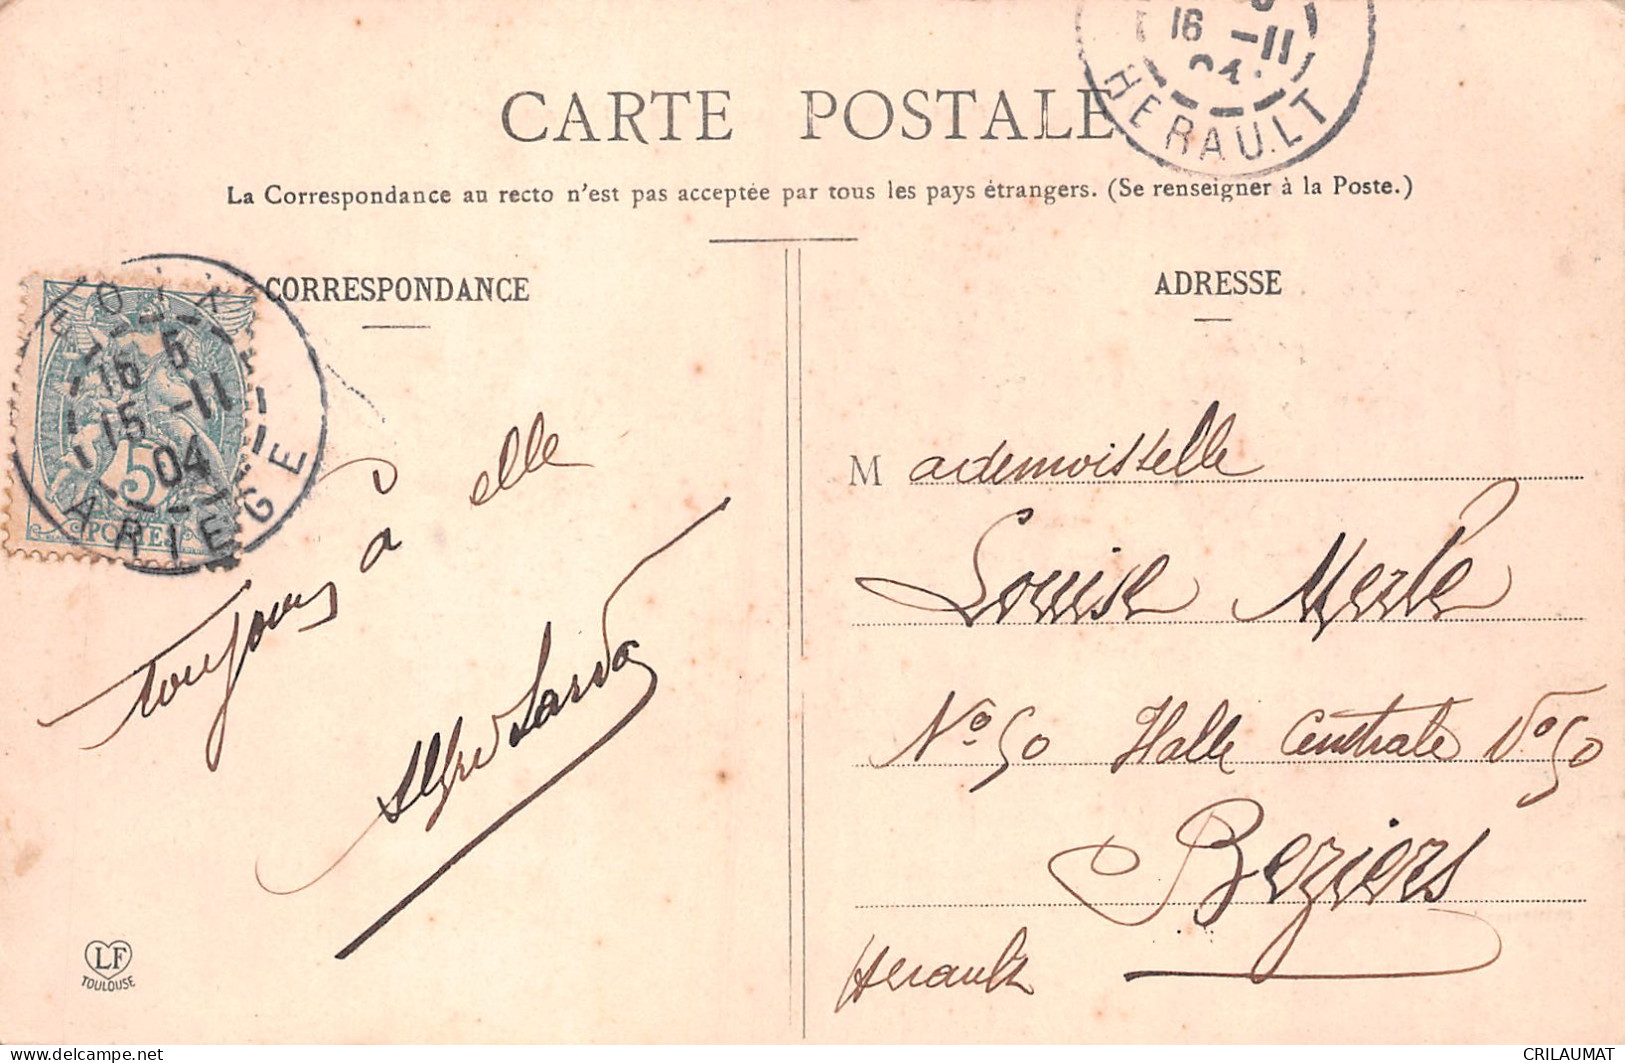 CARTE POSTALE
La Correspondance au recto n'est pas acceptée par tous les pays étrangers. (Se renseigner à la Poste.)
CORRESPONDANCE
ADRESSE
16 -11
04
HERAULT
FOIX
16 5
15 -11
04
ARIEGE
5
POSTES
Toujours à elle
Alfred
LF
TOULOUSE
Mademoiselle
Louise Merle
No 50 Halle Centrale No 50
Beziers
Herault
delcampe.net
CRILAUMAT